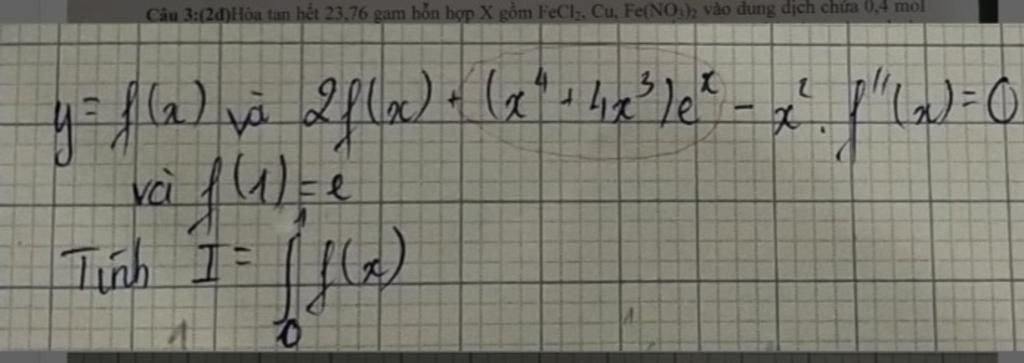 Câu 3:(2đ)Hòa tan hết 23,76 gam hỗn hợp X gồm FeCl₂, Cu, Fe(NO₃)₂ vào dung dịch chứa 0,4 mol
y = f(x) và 2f(x) + (x⁴ + 4x³)eˣ - x². f''(x) = 0
và f(1) = e
Tính I = ∫₀¹ f(x)